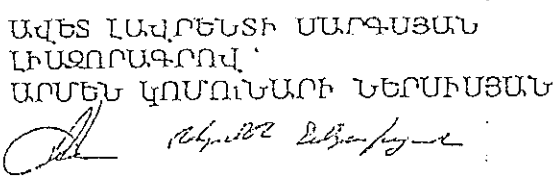 ԱՎԵՏ ԼԱՎՐԵՆՏԻ ՍԱՐԳՍՅԱՆ
ԼԻԱԶՈՐԱԳՐՈՎ՝
ԱՐՄԵՆ ԿՈՄՈՒՆԱՐԻ ՆԵՐՍԻՍՅԱՆ